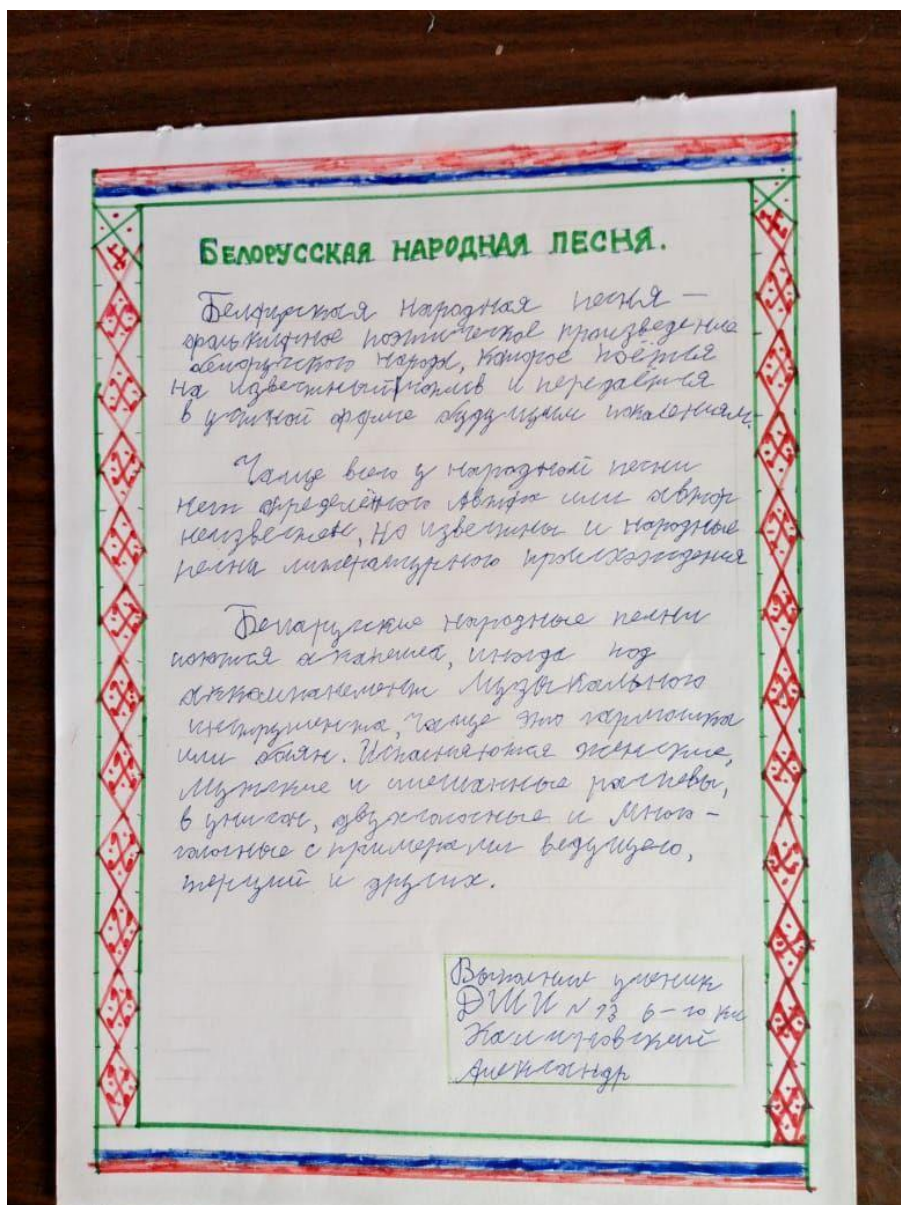 БЕЛОРУССКАЯ НАРОДНАЯ ПЕСНЯ.
Белорусская народная песня –
фольклорное поэтическое произведение
белорусского народа, которое поётся
на известный мотив и передаётся
в устной форме будущим поколениям.
Чаще всего у народной песни
нет определённого автора или автор
неизвестен, но известны и народные
песни литературного происхождения
Беларуские народные песни
поются акапелла, иногда под
аккомпанемент музыкального
инструмента, чаще это гармошка
или баян. Исполняются женские,
мужские и смешанные распевы,
в унисон, двухголосные и много-
голосные с примерами ведущего,
терций и других.
Выполнил ученик
ДШИ №13 6-го кл
Калиновский
Александр